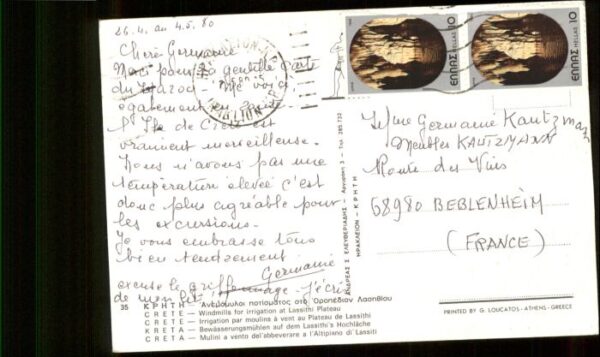 26.4. au 4.5.80
Chère Germaine
Merci pour la gentille carte
du Maroc - Me voici
également en
L'Ile de Crète est
vraiment merveilleuse.
Nous n'avons pas une
température élevée c'est
donc plus agréable pour
les excursions.
Je vous embrasse tous
bien tendrement
Germaine
excuse le griffonnage - j'écris
de mon lit
35 ΚΡΗΤΗ — Ανεμόμυλοι ποτίσματος στο Ὀροπέδιον Λασηθίου
CRETE — Windmills for irrigation at Lassithi Plateau
CRETE — Irrigation par moulins à vent au Plateau de Lassithi
KRETA — Bewässerungsmühlen auf dem Lassithi's Hochläche
CRETA — Mulini a vento del'abbeverare a l'Altipiano di Lassiti
ΑΝΔΡΕΑΣ Σ ΕΛΕΥΘΕΡΙΑΔΗΣ - Αργυράκη 3 - Τηλ. 285.732
ΗΡΑΚΛΕΙΟΝ - ΚΡΗΤΗ
ΕΛΛΑΣ HELLAS 10
ΕΛΛΑΣ HELLAS 10
Mme Germaine Kautzmann
Meubles KAUTZMANN
Route des Vins
68980 BEBLENHEIM
(FRANCE)
PRINTED BY G. LOUCATOS - ATHENS - GREECE